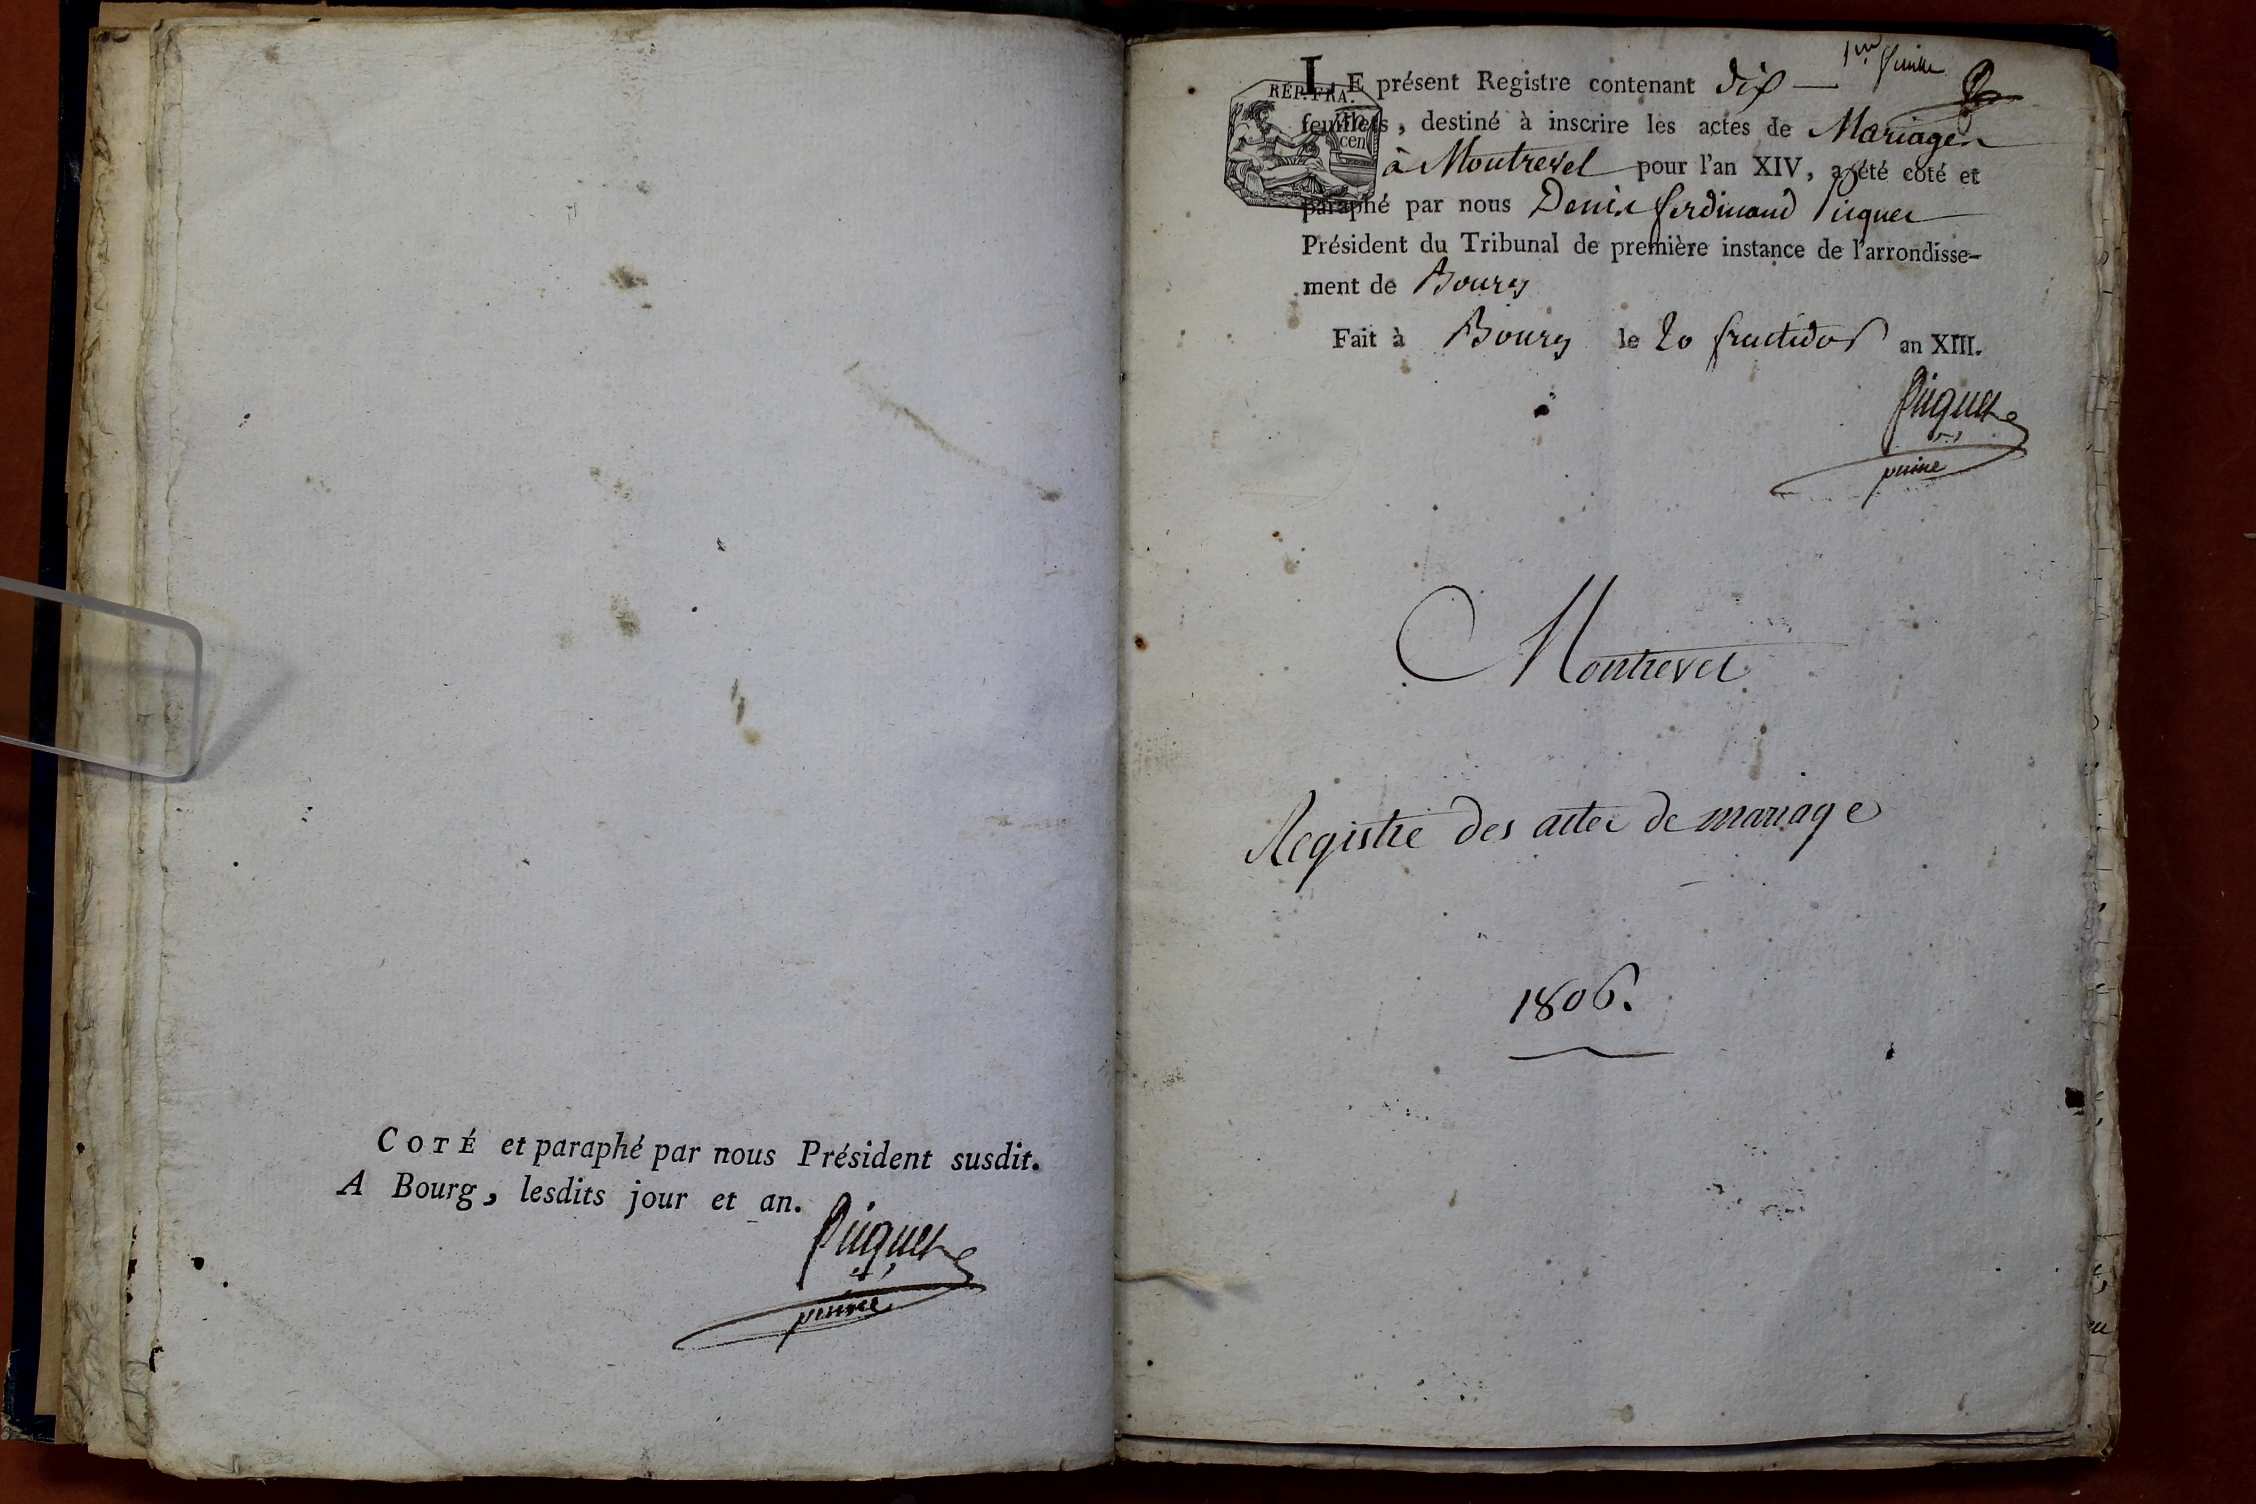 COTÉ et paraphé par nous Président susdit.
A Bourg, lesdits jour et an.
Picquet
puiné
1er feuillet
RÉP. FRA.
cen
LE présent Registre contenant dix
feuillets, destiné à inscrire les actes de Mariages
à Montrevel pour l'an XIV, a été coté et
paraphé par nous Denis ferdinand Picquet
Président du Tribunal de première instance de l'arrondisse-
ment de Bourg
Fait à Bourg le 20 fructidor an XIII.
Picquet
puiné
Montrevel
Registre des actes de mariage
1806.